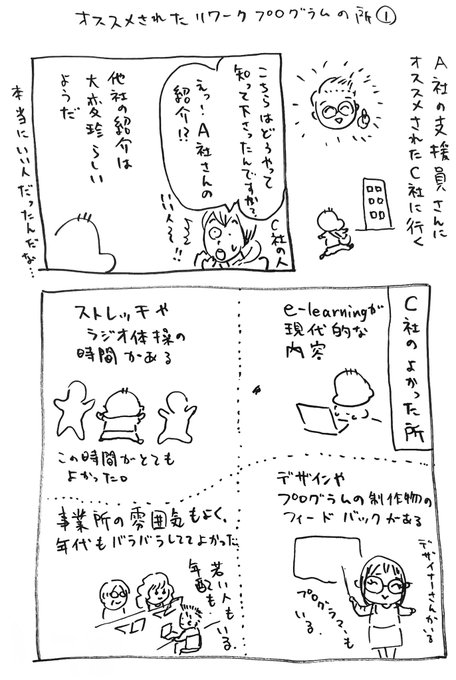 オススメされたリワークプログラムの所①
A社の支援員さんに
オススメされたC社に行く
こちらはどうやって
知って下さったんですか？
えっ！A社さんの
紹介！？
C社の人
いい人そう！！
他社の紹介は
大変珍らしい
ようだ
本当にいい人だったんだな…
C社のよかった所
e-learningが
現代的な
内容
ストレッチや
ラジオ体操の
時間がある
この時間がとても
よかった。
デザインや
プログラムの制作物の
フィードバックがある
デザイナーさんがいる
プログラマーも
いる
事業所の雰囲気もよく、
年代もバラバラしててよかった
若い人もいる
年配も